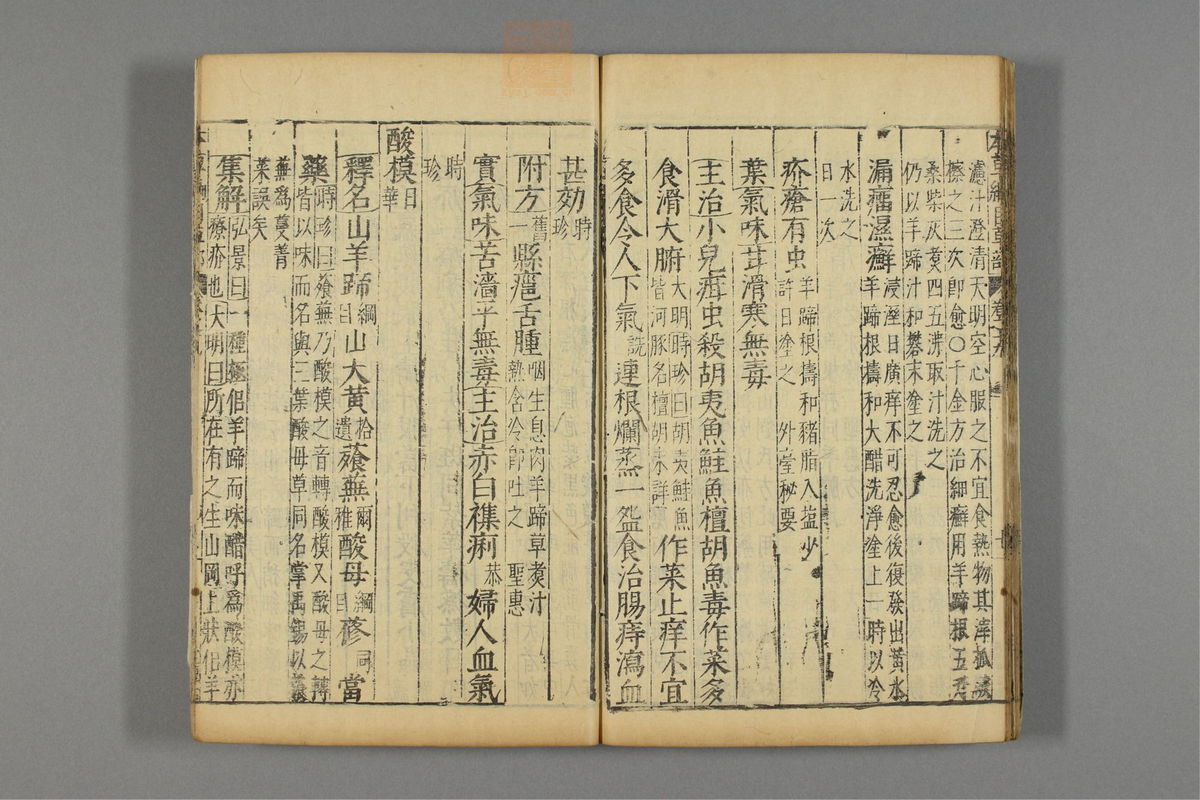 濾汁澄清天明空心服之不宜食熱物其滓抓
擦之三次即愈○千金方治細癬用羊蹄根五
桑柴火煑四五沸取汁洗之
仍以羊蹄汁和礬末塗之
漏瘤濕癬浸溼日廣痒不可忍愈後復發出黃水
羊蹄根擣和大醋洗淨塗上一時以冷
水洗之
日一次
疥瘡有虫羊蹄根擣和豬脂入盐少
許日塗之 外臺秘要
葉氣味甘滑寒無毒
主治小兒疳虫殺胡夷魚鮭魚檀胡魚毒作菜多
食滑大腑大明時珍曰胡夷鮭魚
皆河豚名檀胡未詳作菜止痒不宜
多食令人下氣詵連根爛蒸一盌食治腸痔瀉血
甚効時珍
附方舊一縣癰舌腫咽生息肉羊蹄草煑汁
熱含冷即吐之 聖惠
實氣味苦濇平無毒主治赤白襍痢恭婦人血氣
時珍
酸模日華
釋名山羊蹄綱目山大黃拾遺薞蕪爾雅酸母綱目蓚同當
藥時珍曰薞蕪乃酸模之音轉酸模又酸母之轉
皆以味而名與三葉酸母草同名掌禹錫以薞
蕪爲蔓菁
菜誤矣
集解弘景曰一種極佀羊蹄而味醋呼爲酸模亦
療疥也大明曰所在有之生山岡上狀佀羊